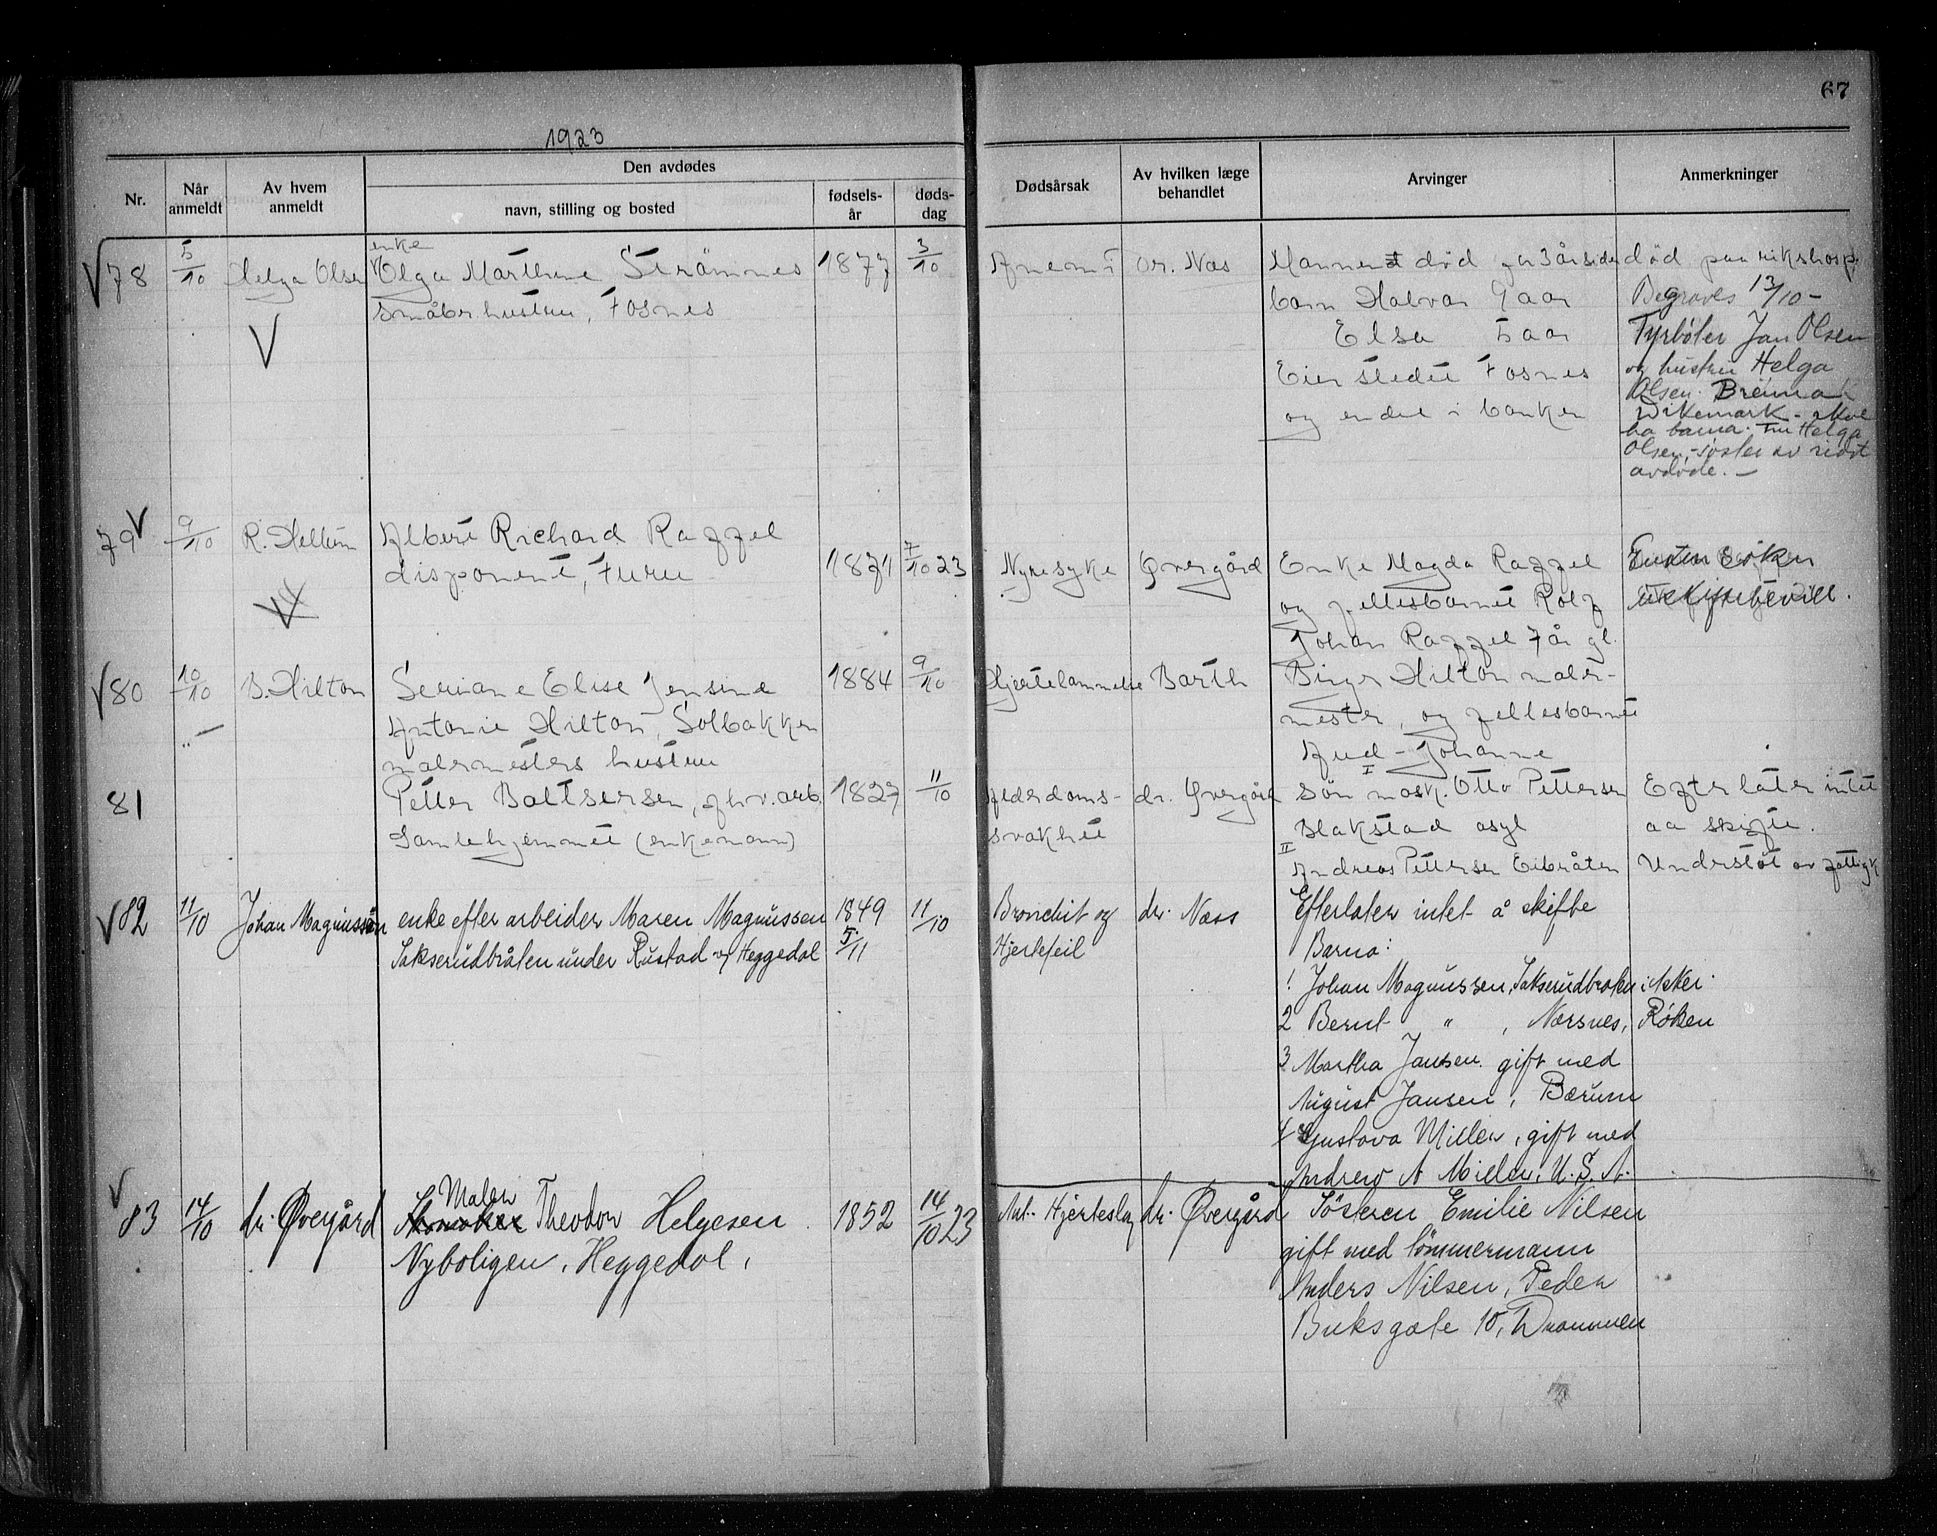 67
1923
Nr.
Når anmeldt
Av hvem anmeldt
Den avdødes
navn, stilling og bosted
fødsels-år
døds-dag
Dødsårsak
Av hvilken læge behandlet
Arvinger
Anmerkninger
V 78
5/10
Helga Olsen
V
enke
Olga Marthine Strömnes
småbr. hustru, Fosnes
1877
3/10
Anemi
Dr. Næs
Mannen død for 3 år siden
barn Halvar 9 aar
Elsa 5 aar
Eier stedet Fosnes
og endel i banken
død paa rikshosp.
Begraves 13/10 -
Fyrbøter Jan Olsen
og hustru Helga
Olsen
Dikemark - skal
ha barna. Fru Helga
Olsen, - søster av sidst
avdøde. -
79 V
9/10
R. Hellum
Albert Richard Raffel
disponent, Furu
1871
7/10 23
Nyresyke
Øvergård
Enke Magda Raffel
og fellesbarnet Rolf
Johan Raffel 7 år gl.
Enken søker
V 80
10/10
B. Hilton
Seriane Elise Jensine
Antonie Hilton, Solbakken
malermesters hustru
1884
9/10
Hjertelammelse
Barth
Birger Hilton maler-
mester, og fellesbarnet
Aud - Johanne
81
" -
Petter Baltsersen, fhv. arb.
Gamlehjemmet (enkemann)
1827
11/10
Alderdoms-
svakhet
dr. Øvergård
I
Søn mask. Otto Pettersen
Blakstad asyl
II
Andreas Pettersen Eibråten
Efterlater intet
aa skifte.
Understøt av fattigk
V 82
11/10
Johan Magnussen
enke efter arbeider Maren Magnussen
Sakserudbråten under Rustad v/ Heggedal
1849
5/11
11/10
Bronchit og
Hjertefeil
dr. Næss
Efterlater intet å skifte
Barna:
1 Johan Magnussen, Sakserudbråten i Asker.
2 Bernt " , Nærsnes, Røken
3 Martha Jansen gift med
August Jansen, Bærum
4 Gustava Miller, gift med
Andrew A Miller, U.S.A.
V
83
14/10
dr. Øvergård
Maler
Skomaker Theodor Helgesen
Nyboligen, Heggedal,
1852
14/10 23
Ant. Hjerteslag
dr. Øvergård
Søsteren Emilie Nilsen
gift med tømmermann
Anders Nilsen, Peder
Buksgate 10, Drammen